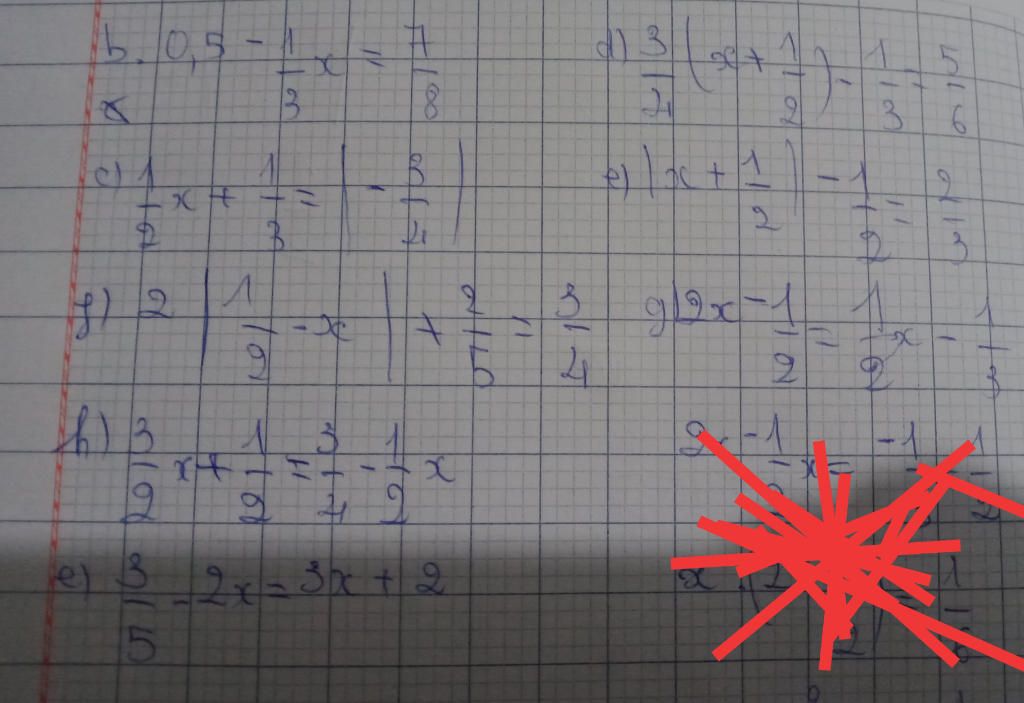 b. 0,5 - 1/3 x = 7/8
d) 3/4 (x + 1/2) - 1/3 = 5/6
c) 1/2 x + 1/3 = | - 3/4 |
e) | x + 1/2 | - 1/2 = 2/3
f) 2 | 1/2 - x | + 2/5 = 3/4
g) 2x - 1/2 = 1/2 x - 1/3
h) 3/2 x + 1/2 = 3/4 - 1/2 x
e) 3/5 - 2x = 3x + 2